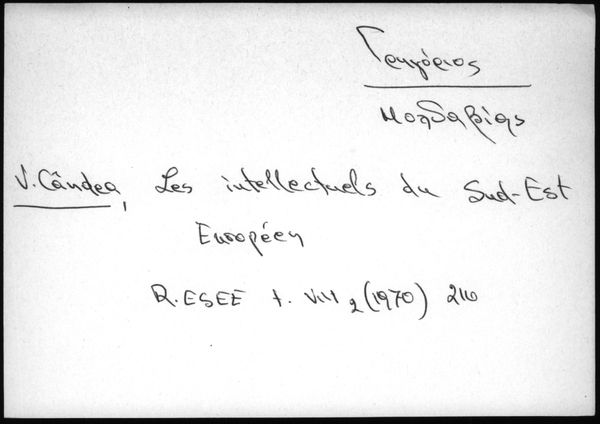 Γρηγόριος
Μολδαβίας
V. Cândea, Les intellectuels du Sud-Est
Européen
R. ESEE t. VIII 2 (1970)